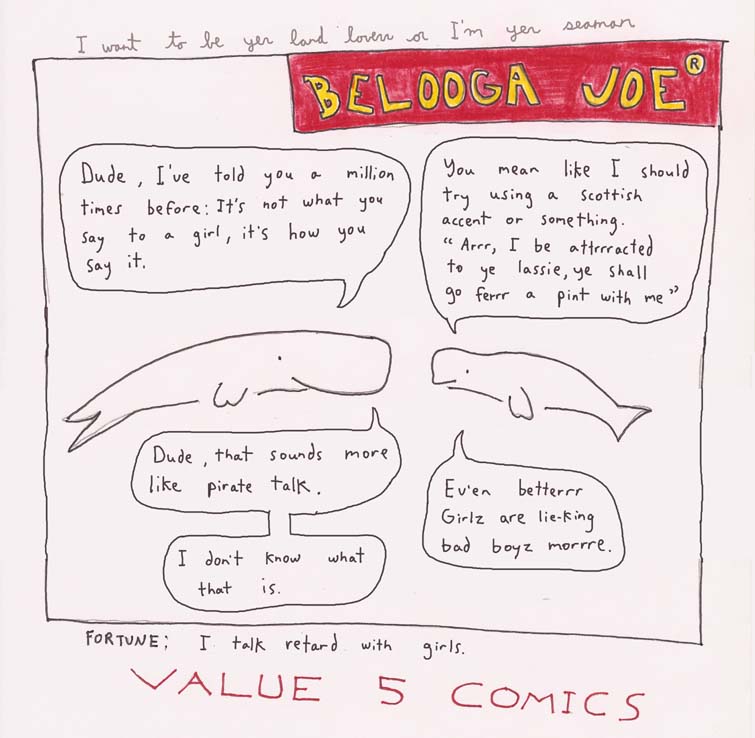 I want to be yer land loverr or I'm yer seaman
BELOOGA JOE®
Dude, I've told you a million
times before: It's not what you
say to a girl, it's how you
say it.
You mean like I should
try using a scottish
accent or something.
"Arrr, I be attrrracted
to ye lassie, ye shall
go ferrr a pint with me"
Dude, that sounds more
like pirate talk.
I don't know what
that is.
Ev'en betterrr
Girlz are lie-king
bad boyz morrre.
FORTUNE: I talk retard with girls.
VALUE 5 COMICS